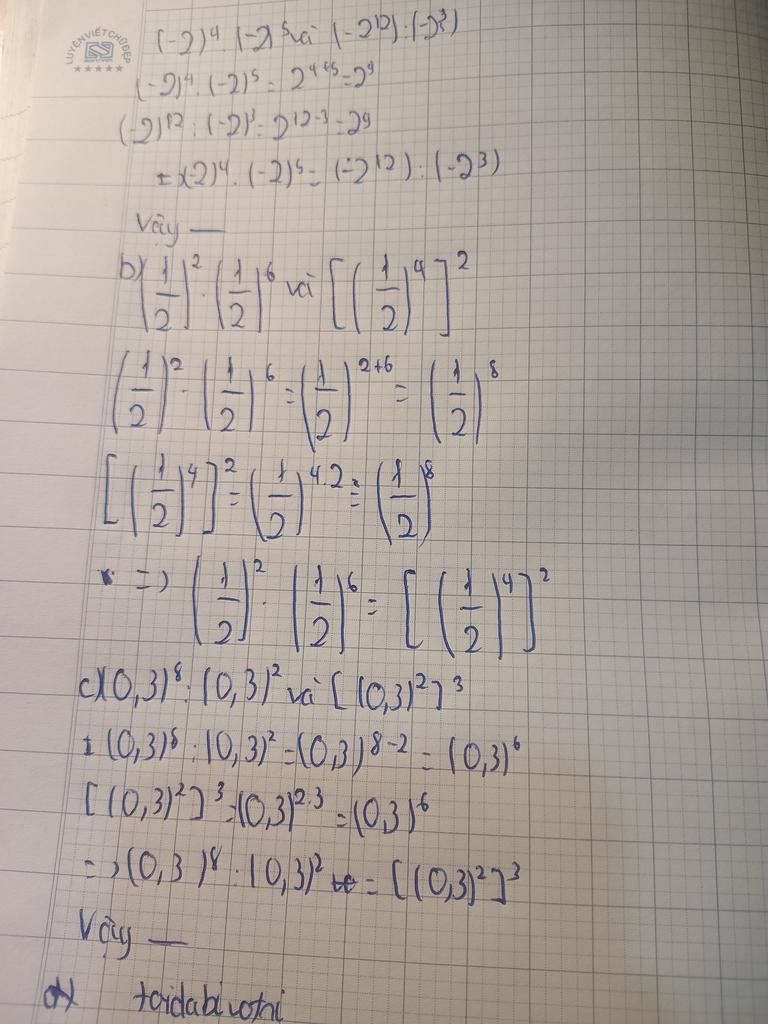 LUYỆN VIẾT CHỮ ĐẸP
(-2)⁴ . (-2)⁵ và (-2¹²) : (-2³)
(-2)⁴ . (-2)⁵ = 2⁴⁺⁵ = 2⁹
(-2)¹² : (-2)³ = 2¹²⁻³ = 2⁹
= (-2)⁴ . (-2)⁵ = (-2¹²) : (-2³)
Vậy —
b) (1/2)² . (1/2)⁶ và [(1/2)⁴]²
(1/2)² . (1/2)⁶ = (1/2)²⁺⁶ = (1/2)⁸
[(1/2)⁴]² = (1/2)⁴·² = (1/2)⁸
=> (1/2)² . (1/2)⁶ = [(1/2)⁴]²
c) (0,3)⁸ : (0,3)² và [(0,3)²]³
(0,3)⁸ : (0,3)² = (0,3)⁸⁻² = (0,3)⁶
[(0,3)²]³ = (0,3)²·³ = (0,3)⁶
=> (0,3)⁸ : (0,3)² = [(0,3)²]³
Vậy —